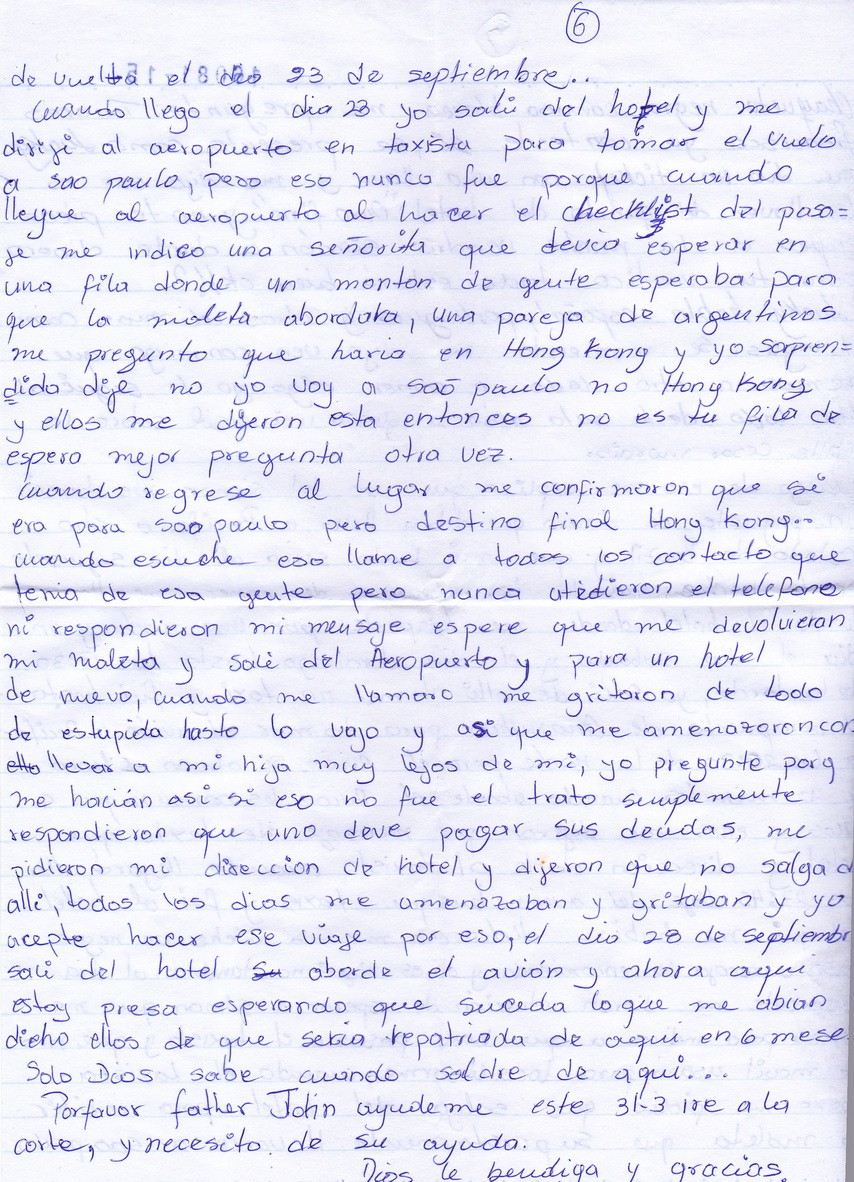 6
de vuelta el dia 23 de septiembre..
Cuando llego el dia 23 yo sali del hotel y me
dirigi al aeropuerto en taxista para tomar el vuelo
a sao paulo, pero eso nunca fue porque cuando
llegue al aeropuerto al hacer el checklist del pasa=
je me indico una señorita que devia esperar en
una fila donde un monton de gente esperaba para
que la maleta abordara, una pareja de argentinos
me pregunto que haria en Hong Kong y yo sorpren=
dida dije no yo voy a sao paulo no Hong Kong
y ellos me dijeron esta entonces no es tu fila de
espera mejor pregunta otra vez.
Cuando regrese al lugar me confirmaron que si
era para sao paulo pero destino final Hong Kong..
cuando escuche eso llame a todos los contacto que
tenia de esa gente pero nunca atedieron el telefono
ni respondieron mi mensaje espere que me devolvieran
mi maleta y sali del Aeropuerto y para un hotel
de nuevo, cuando me llamaro me gritaron de todo
de estupida hasta lo vajo y asi que me amenazaron con
llevar a mi hija muy lejos de mi, yo pregunte porq
me hacián asi si eso no fue el trato simplemente
respondieron que uno deve pagar sus deudas, me
pidieron mi direccion de hotel y dijeron que no salga d
alli, todos los dias me amenazaban y gritaban y yo
acepte hacer ese viaje por eso, el dia 28 de septiembr
sali del hotel aborde el avión y ahora aqui
estoy presa esperando que suceda lo que me abian
dicho ellos de que seria repatriada de aqui en 6 mese
Solo Dios sabe cuando saldre de aqui...
Porfavor father John ayudeme este 31-3 ire a la
corte, y necesito de su ayuda.
Dios le bendiga y gracias.